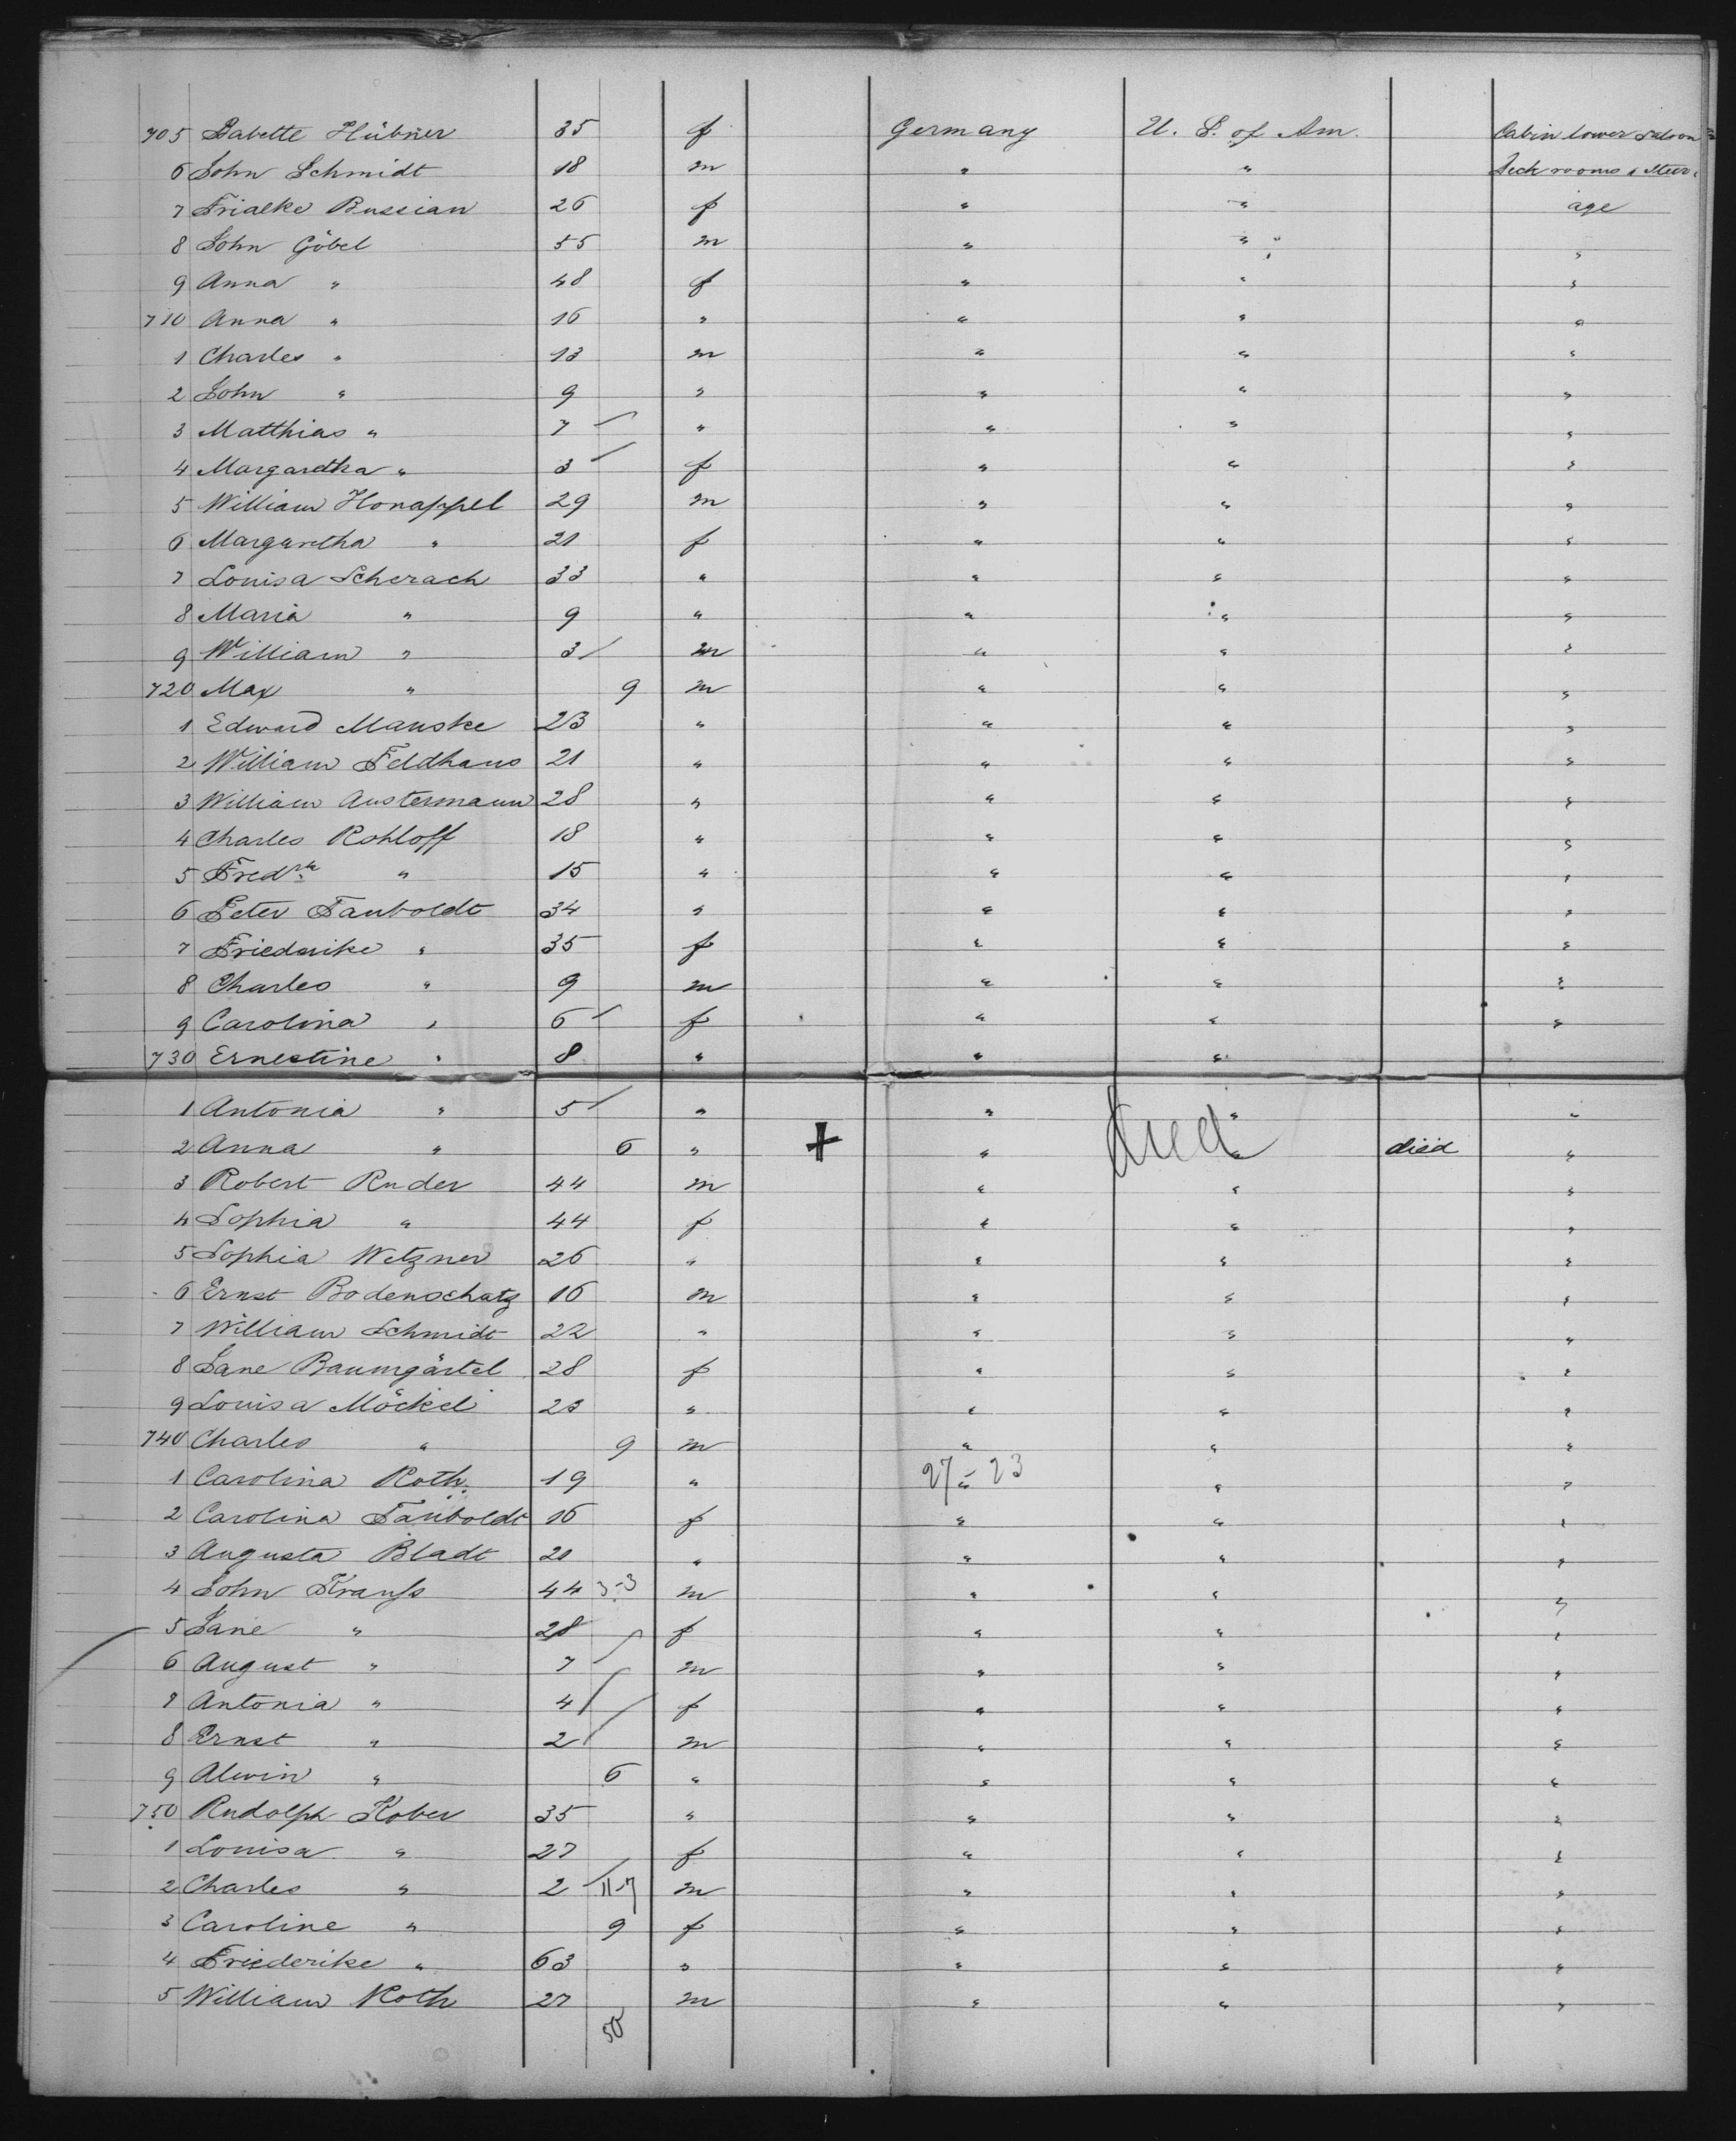 705 Babette Hübner 35 f Germany U. S. of Am. Cabin lower Saloon
6 John Schmidt 18 m " " Deck rooms & Steer-
7 Frialke Bussian 26 f " " age
8 John Göbel 55 m " " "
9 Anna " 48 f " " "
710 Anna " 16 " " " "
1 Charles " 13 m " " "
2 John " 9 " " " "
3 Matthias " 7 " " " "
4 Margaretha " 3 f " " "
5 William Honappel 29 m " " "
6 Margaretha " 21 f " " "
7 Louisa Scherach 33 " " " "
8 Maria " 9 " " " "
9 William " 3 m " " "
720 Max " 9 m " " "
1 Edward Manske 23 " " " "
2 William Feldhaus 21 " " " "
3 William Austermann 28 " " " "
4 Charles Rohloff 18 " " " "
5 Fredk " 15 " " " "
6 Peter Tauboldt 34 " " " "
7 Friederike " 35 f " " "
8 Charles " 9 m " " "
9 Carolina " 6 f " " "
730 Ernestine " 8 " " "
1 Antonia " 5 " " " "
2 Anna " 6 " + " died " died "
3 Robert Ruder 44 m " " "
4 Sophia " 44 f " " "
5 Sophia Wetzner 26 " " " "
6 Ernst Bodenschatz 16 m " " "
7 William Schmidt 22 " " " "
8 Jane Baumgärtel 28 f " " "
9 Louisa Möckel 23 " " " "
740 Charles " 9 m " " "
1 Carolina Roth 19 " 27-23 " " "
2 Carolina Tauboldt 16 f " " "
3 Augusta Bladt 21 " " " "
4 John Krauß 44 3-3 m " " "
5 Jane " 28 f " " "
6 August " 7 m " " "
7 Antonia " 4 f " " "
8 Ernst " 2 m " " "
9 Alwin " 6 " " " "
750 Rudolph Kober 35 " " " "
1 Louisa " 27 f " " "
2 Charles " 2 11-7 m " " "
3 Caroline " 9 f " " "
4 Friederike " 63 " " " "
5 William Roth 27 m " " "
50